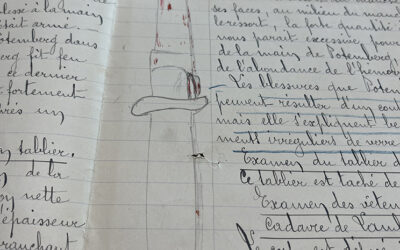 blessé à la main
était armé
Potemberg dans
berg fit feu
ce dernier
fortement
après un
tablier.
de la
nette
épaisseur
tranchant
ses faces, au milieu du manc
le ressort, la forte quantité
nous parait excessive, pour
de la main de Potemberg
de l'abondance de l'hémo
Les blessures que Potem
peuvent résulter d'un cou
mais elle s'expliquent be
ments irréguliers de verre
Examen du tablier d
Ce tablier est taché de
Examen des vêtem
cadavre de Lamb